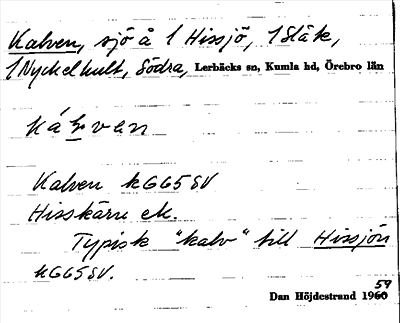 Kalven, sjö å 1 Hissjö, 1 Släk,
1 Nyckelhult, Södra, Lerbäcks sn, Kumla hd, Örebro län
Kalven k6G5SV
Hisskärn ek.
Typisk "kalv" till Hissjön
k6G5SV.
59
Dan Höjdestrand 1960